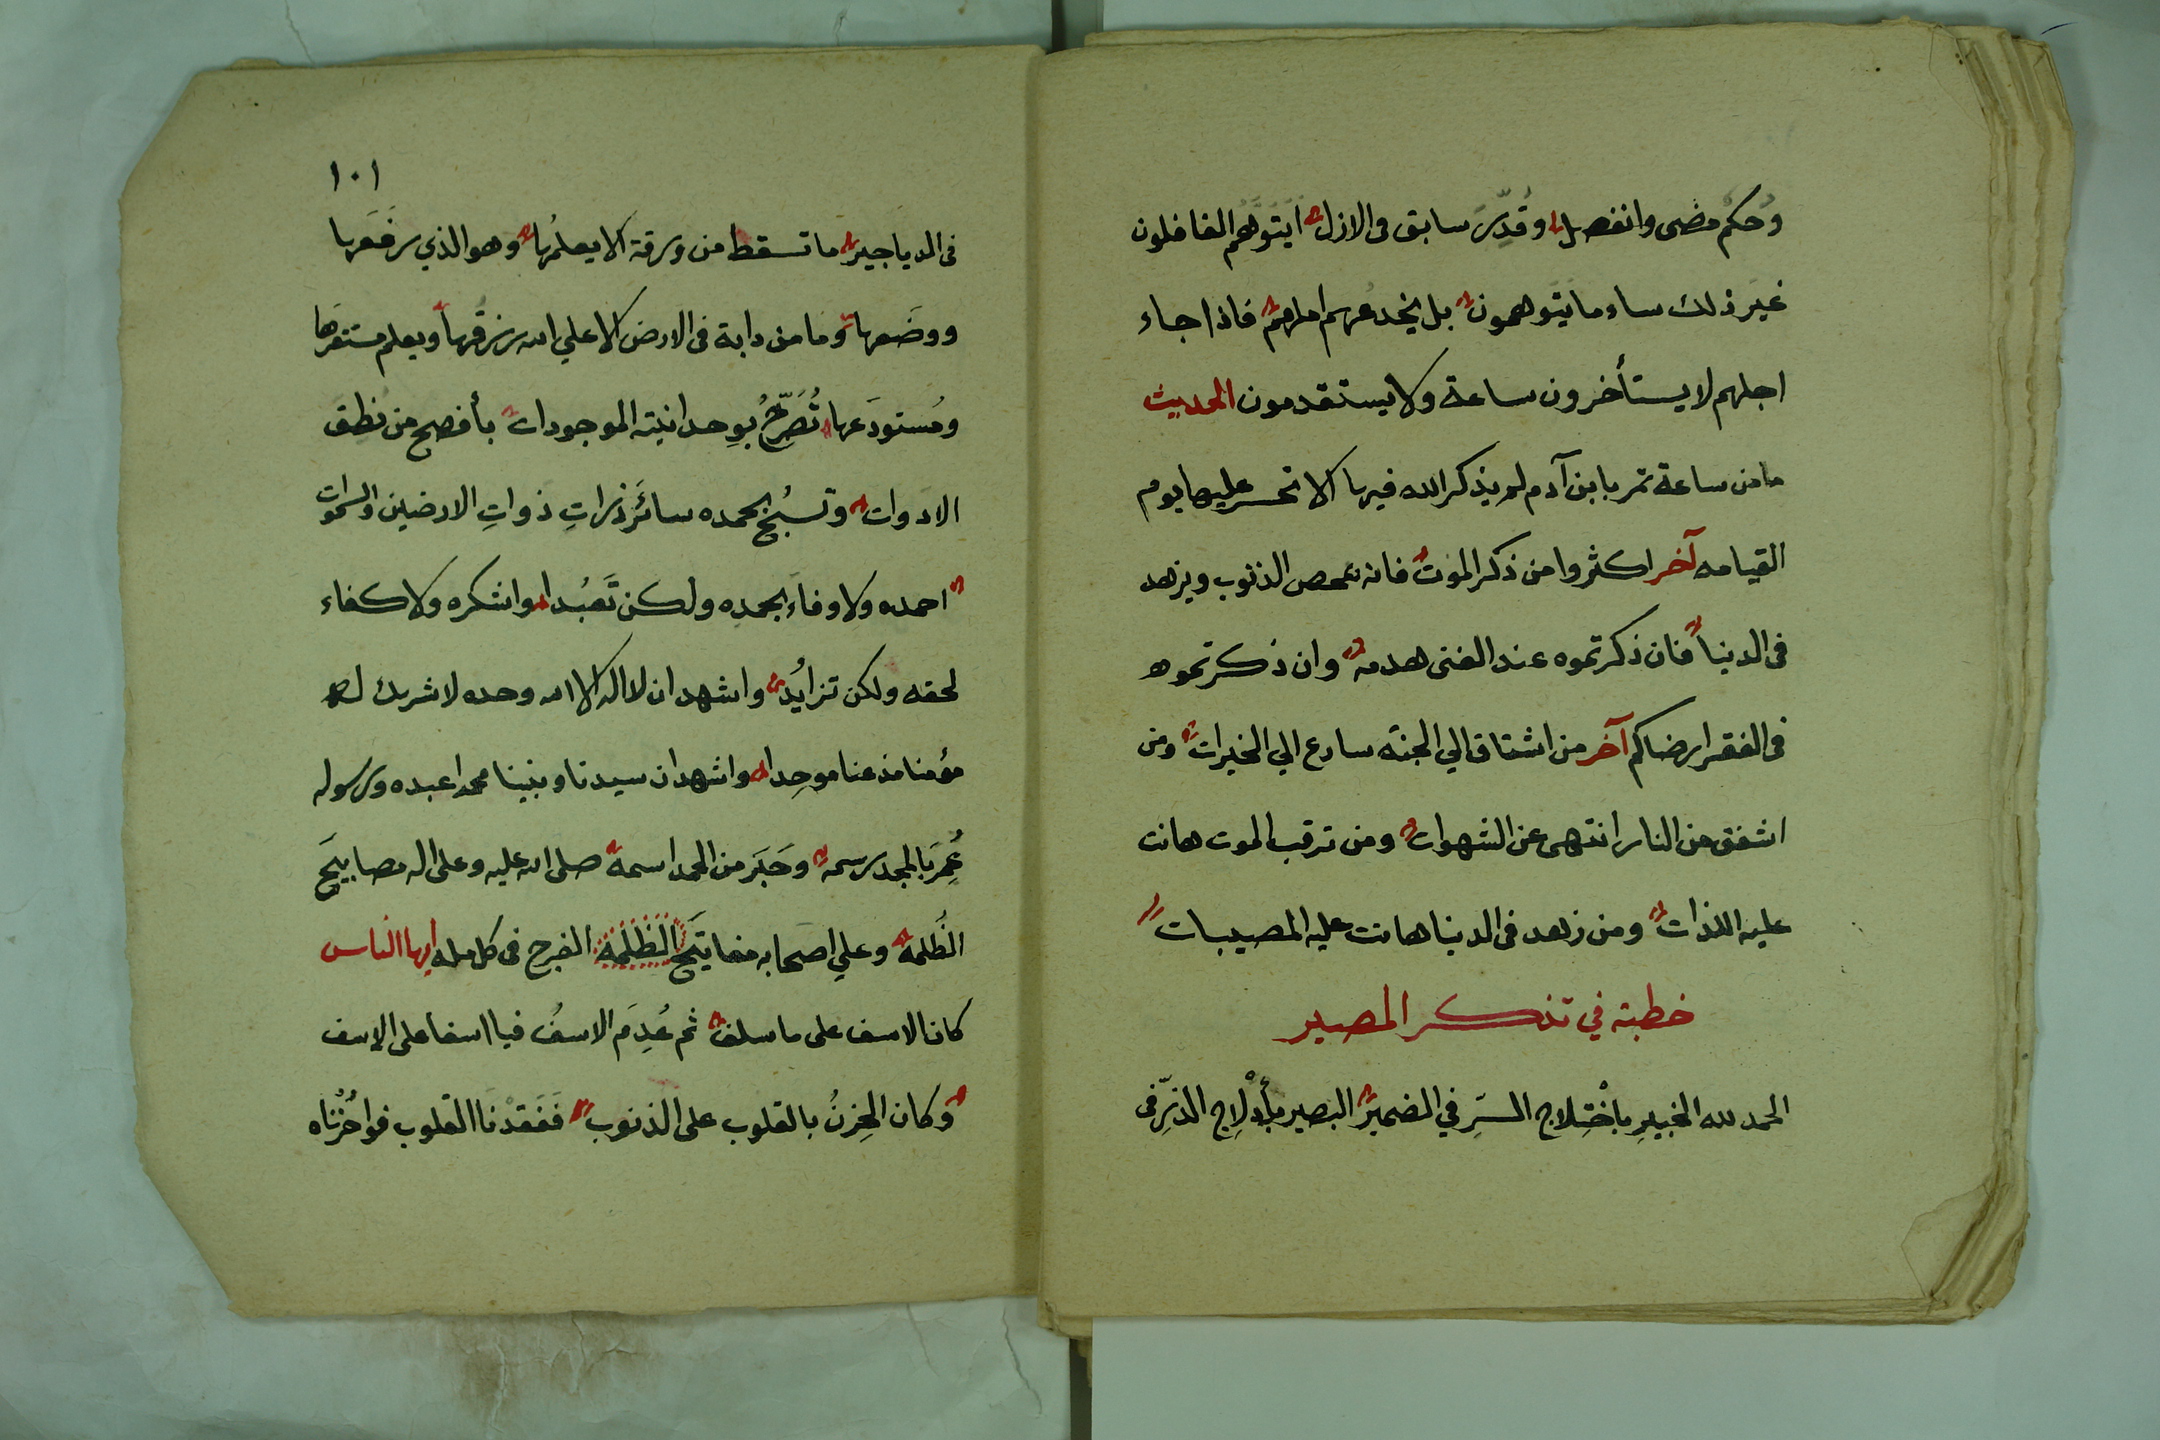 وحكم مضى وانفصل وقدّر سابق فى الازل ايتوهم الغافلون
غير ذلك ساء ما يتوهمون بل يخدعهم املهم فاذا جاء
اجلهم لا يستأخرون ساعة ولا يستقدمون الحديث
ما من ساعة تمر بابن آدم لم يذكر الله فيها الا تحسر عليها يوم
القيامه آخر اكثروا من ذكر الموت فانه يمحص الذنوب ويزهد
فى الدنيا فان ذكرتموه عند الغنى هدمه وان ذكرتموه
فى الفقر ارضاكم آخر من اشتاق الي الجنة سارع الي الخيرات ومن
اشفق من النار انتهى عن الشهوات ومن ترقب الموت هانت
عليه اللذات ومن زهد فى الدنيا هانت عليه المصيبات
خطبة في تذكر المصير
الحمد لله الخبيرِ باخْتِلاج السّرِ في الضمير البصير بأدْلِاج الذرِّ فى
١٠١
فى الدياجير ما تسقط من ورقة الا يعلمُها وهو الذي رفَعَها
ووضَعها وما من دابة فى الارض الا علي الله رزقُها ويعلم مستقرها
ومُستودَعها تُصَرِّحُ بوِحدانيته الموجودات بأفصح من نُطِقَ
الادوات وتسبُح بحمده سائرُ ذراتِ ذواتِ الارضين والسموات
احمده ولا وفاءَ بحمدِه ولكن تَعبُدا واشكره ولا كفاء
لحقه ولكن تزايُد واشهد ان لا اله الا الله وحده لا شريك له
مؤمنا مذعنا موحِدا واشهد ان سيدنا ونبينا محمدا عبده ورسوله
عُمِرَ بالمجد رسمه وحَبَر من الحمد اسمه صلى الله عليه وعلى اله مصابيحَ
الظُلمه وعلي اصحابه مفاتيَح الظُلمة الفرج فى كل مله ايها الناس
كان الاسف على ما سلف ثم عُدِمَ الاسفُ فيا اسفا على الاسف
وكان الحِزنُ بالقلوب على الذنوب فَفَقدْنا القلوب فواحُزْناه